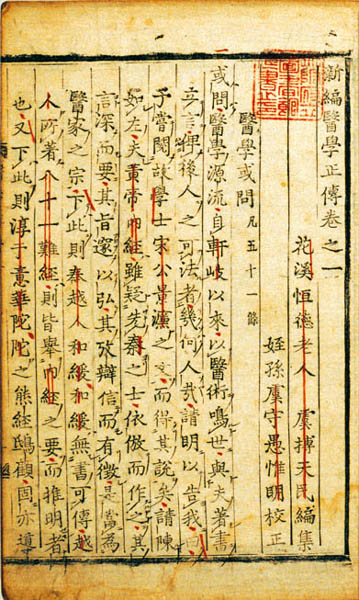 新編醫學正傳卷之一
花溪恒德老人 虞摶天民編集
姪孫虞守愚惟明校正
醫學或問 凡五十一條
或問醫學源流自軒岐以來以醫術鳴世與夫著書
立言俾後人之可法者幾何人哉請明以告我曰
予嘗閱故學士宋公景濂之文而得其說矣請陳
如左夫黃帝內經雖疑先秦之士依倣而作之其
言深而要其旨邃以弘其攷辯信而有徵是當為
醫家之宗下此則秦越人和緩和緩無書可傳越
人所著八十一難經則皆舉內經之要而推明者
也又下此則淳于意華陀陀之熊經鴟顧固亦